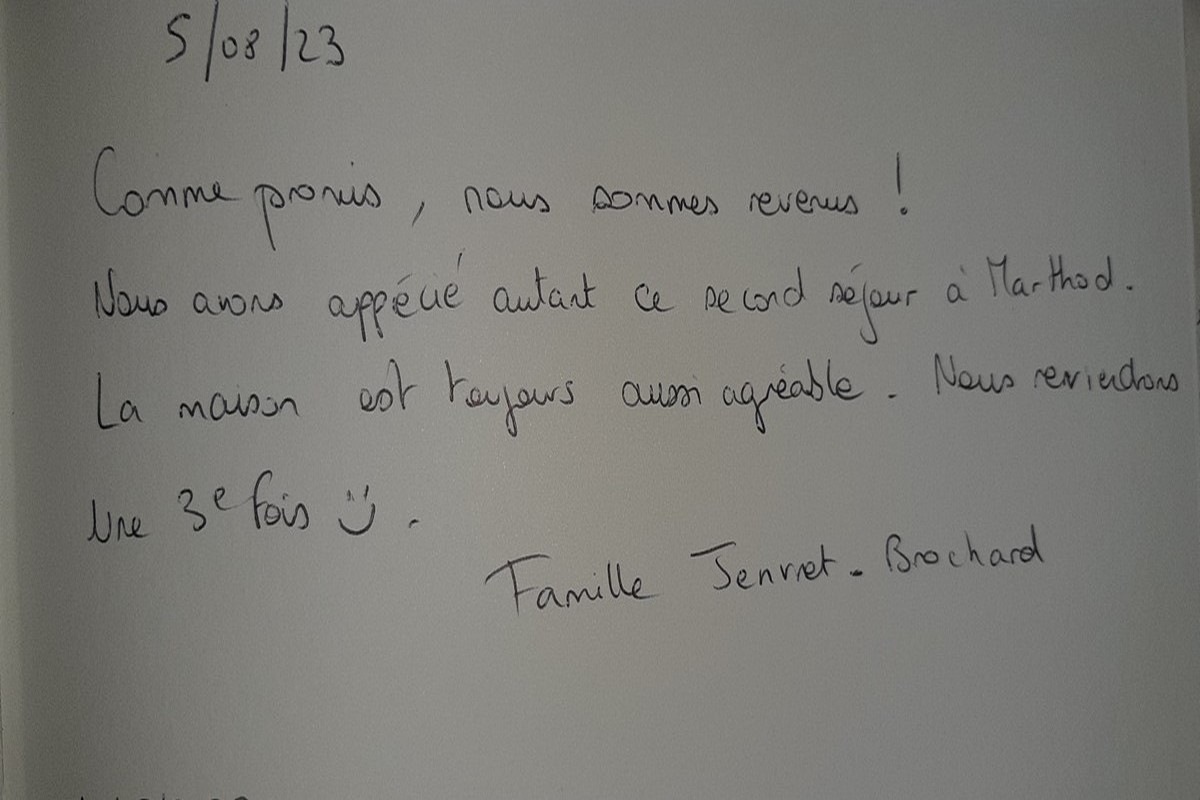 5/08/23
Comme promis, nous sommes revenus !
Nous avons appécié autant ce second séjour à Marthod.
La maison est toujours aussi agréable. Nous reviendrons
Une 3e fois :).
Famille Jenvret-Brochard